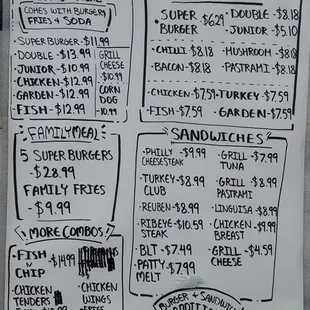 COMES WITH BURGER,
FRIES + SODA
·SUPER BURGER-$11.99
·DOUBLE -$13.99
·JUNIOR-$10.99
·CHICKEN-$12.99
·GARDEN-$12.99
·FISH-$12.99
GRILL
CHEESE
-$10.99
CORN
DOG
-10.99
·SUPER
BURGER
-$6.29
·DOUBLE-$8.18
·JUNIOR-$5.10
·CHILI $8.18
·MUSHROOM-$8.18
·BACON-$8.18
·PASTRAMI-$8.18
·CHICKEN-$7.59
·TURKEY-$7.59
·FISH-$7.59
·GARDEN-$7.59
FAMILY MEAL
5 SUPER BURGERS
-$28.99
FAMILY FRIES
-$9.99
SANDWICHES
·PHILLY
CHEESESTEAK
-$9.99
·GRILL
TUNA
-$7.99
·TURKEY
CLUB
-$8.99
·GRILL
PASTRAMI
-$8.99
·REUBEN-$8.99
·LINGUISA-$8.99
·RIBEYE
STEAK
-$10.59
·CHICKEN
BREAST
-$9.99
·BLT-$7.49
·GRILL
CHEESE
-$4.59
·PATTY
MELT
-$7.99
MORE COMBOS
·FISH
N
CHIP
-$14.99
·CHICKEN
TENDERS
·CHICKEN
WINGS
BURGER + SANDWICH